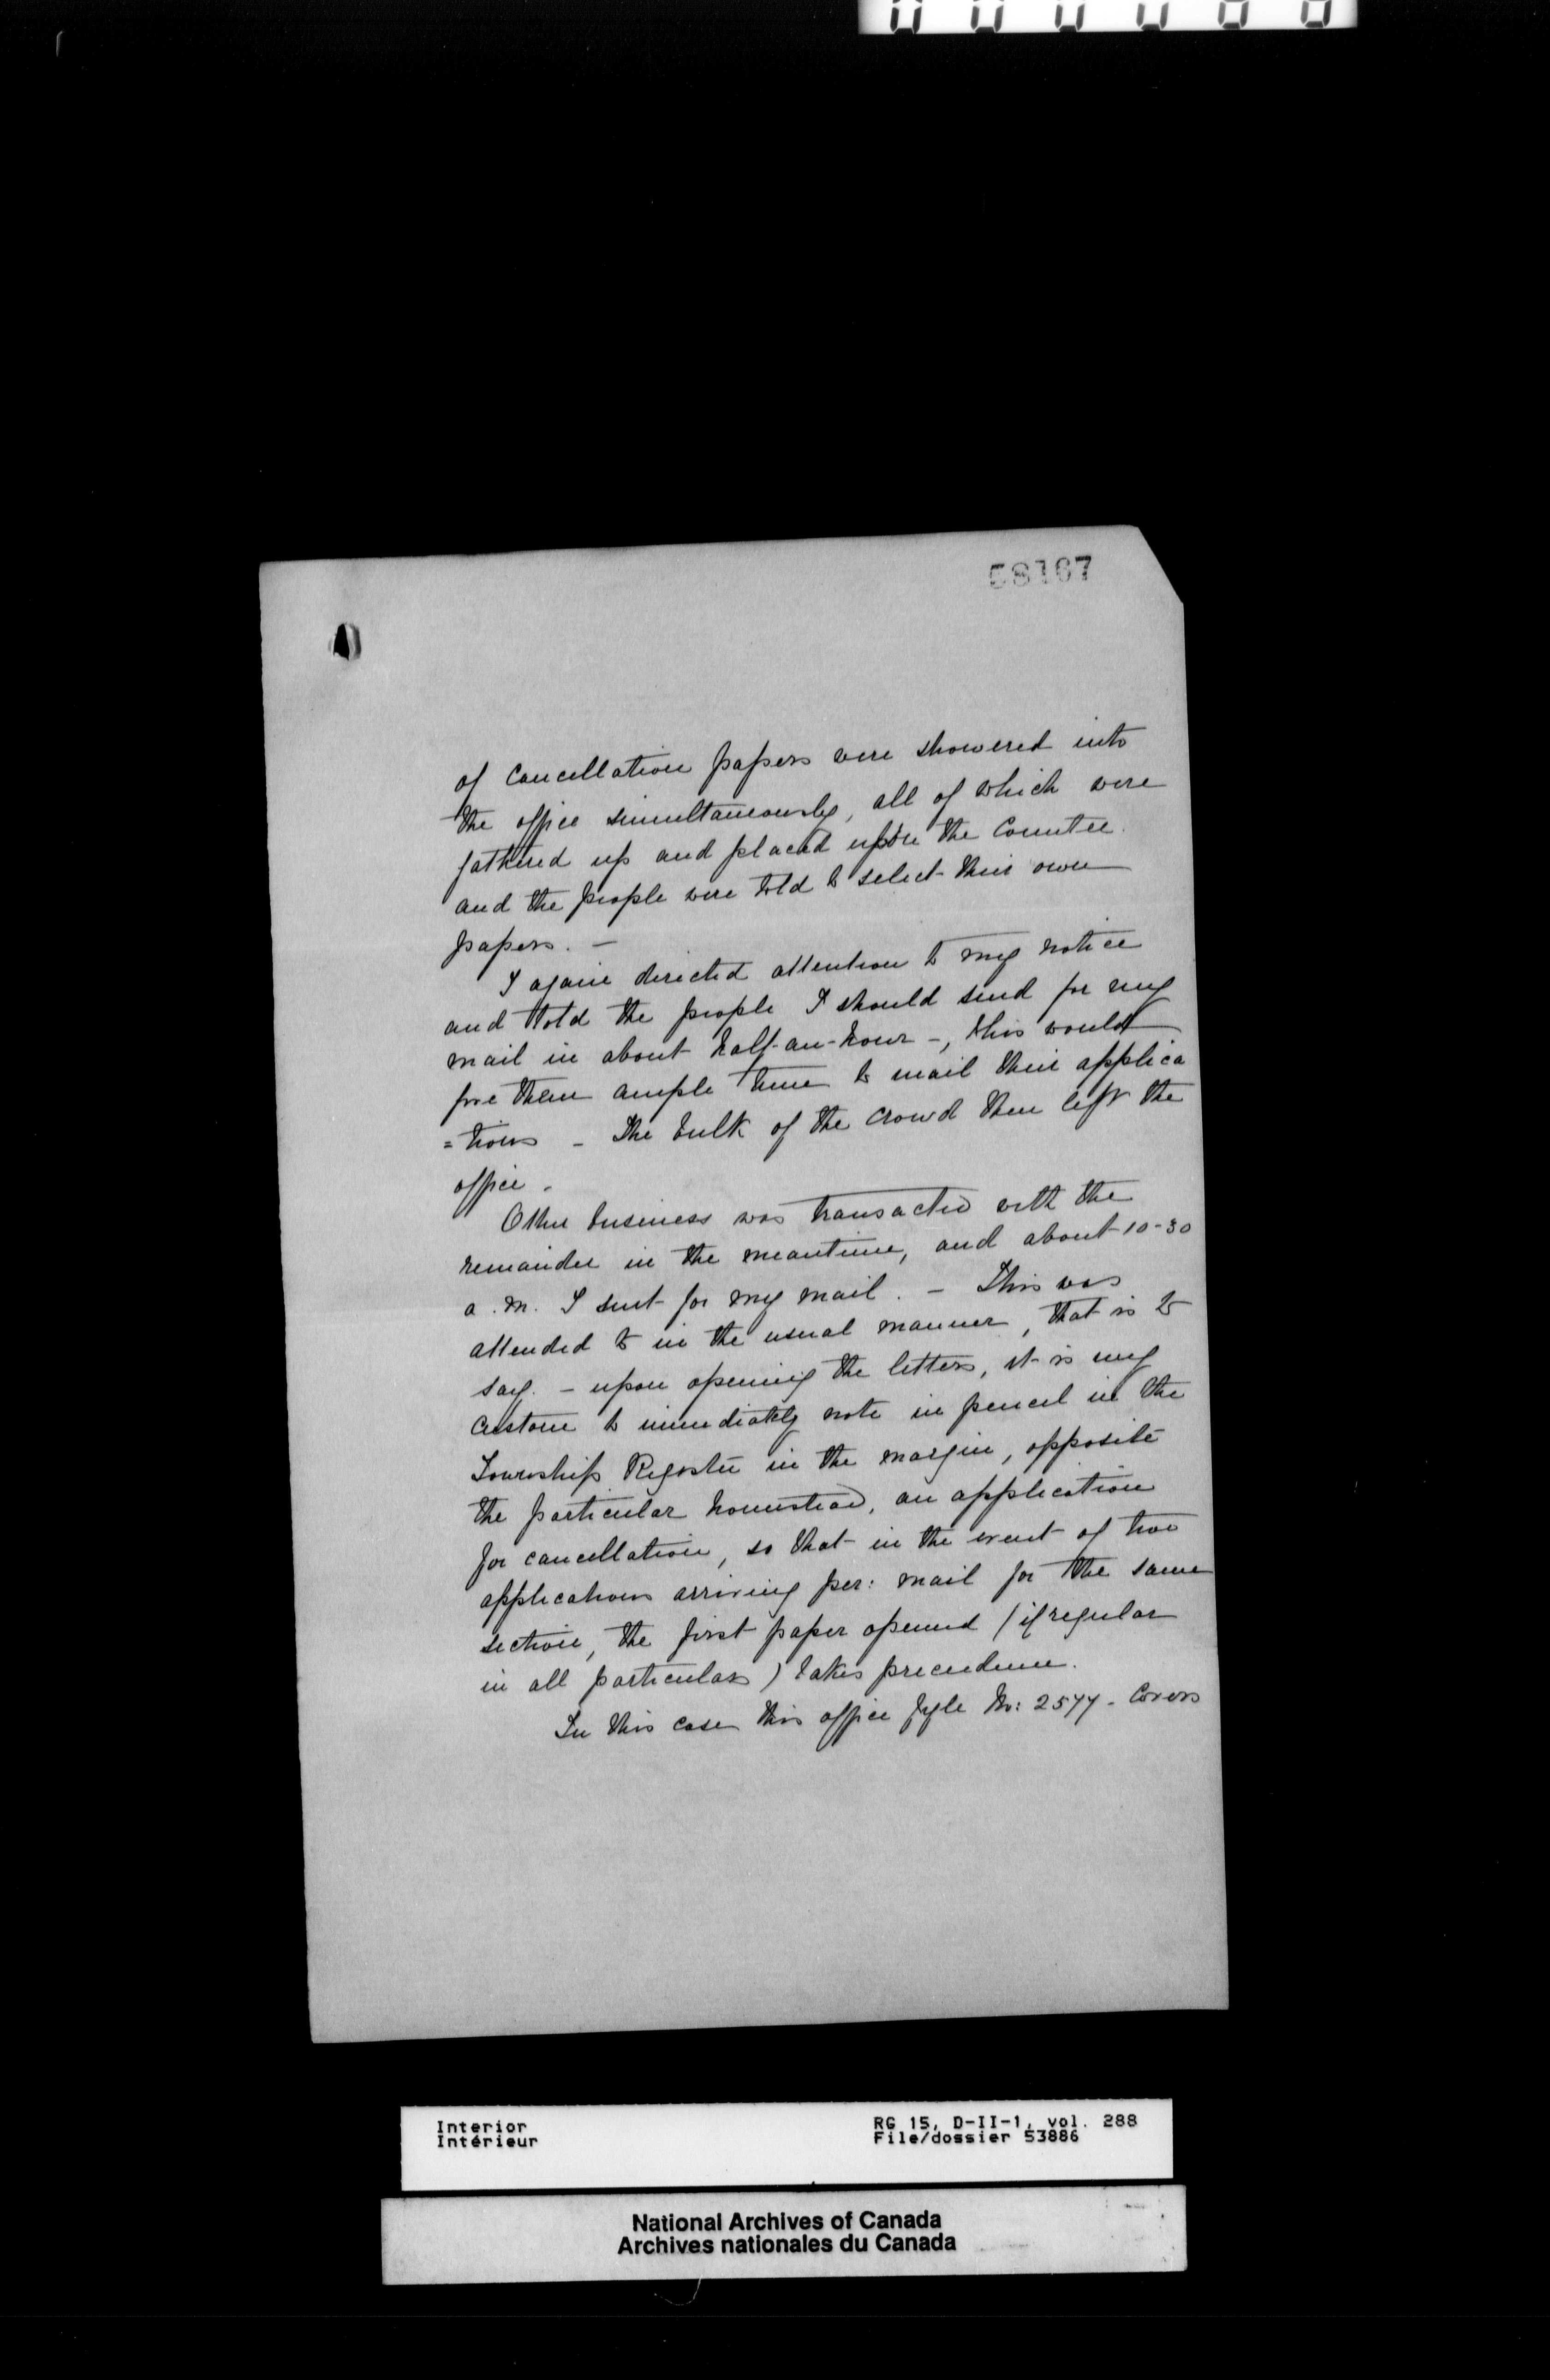 58167
of Cancellation papers were showered into
the office simultaneously, all of which were
gathered up and placed upon the Counter.
and the people were told to select their own
papers. -
I again directed attention to my notice
and told the people I should send for my
mail in about half-an-hour -, this would
give them ample time to mail their applica
=tions - The bulk of the crowd then left the
office.
Other business was transacted with the
remainder in the meantime, and about 10-30
a.m. I sent for my mail. - This was
attended to in the usual manner, that is to
say. - upon opening the letters, it is my
custom to immediately note in pencil in the
Township Register in the margin, opposite
the particular homestead, an application
for cancellation, so that in the event of two
applications arriving per: mail for the same
section, the first paper opened (if regular
in all particulars) takes precedence.
In this case this office fyle No: 2577 - Covers
Interior
Intérieur
RG 15, D-II-1, vol. 288
File/dossier 53886
National Archives of Canada
Archives nationales du Canada